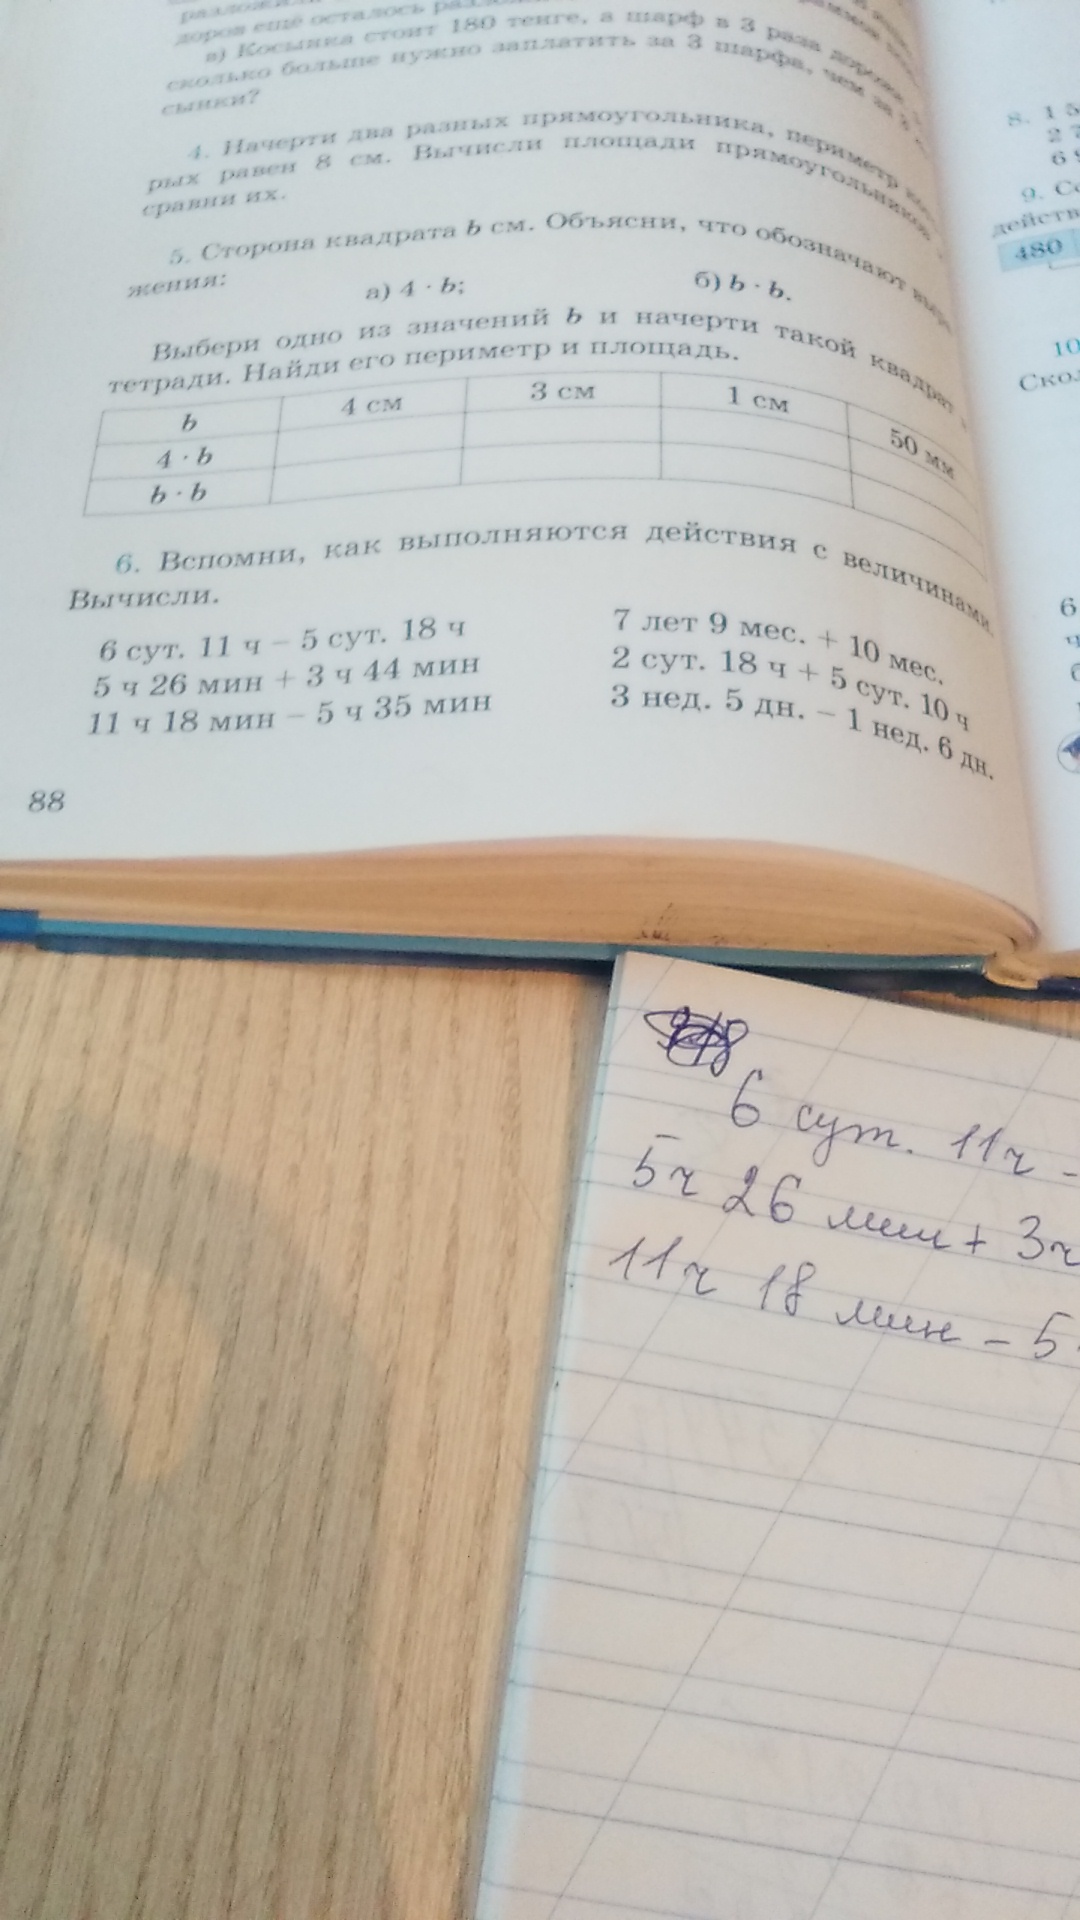 доров ещё осталось
в) Косынка стоит 180 тенге, а шарф в 3 раза
сколько больше нужно заплатить за 3 шарфа, чем за
сынки?
4. Начерти два разных прямоугольника, периметр
рых равен 8 см. Вычисли площади прямоугольников
сравни их.
5. Сторона квадрата b см. Объясни, что обозначают
жения:
а) 4 · b; б) b · b.
Выбери одно из значений b и начерти такой квадрат
тетради. Найди его периметр и площадь.
b 4 см 3 см 1 см 50 мм
4 · b
b · b
6. Вспомни, как выполняются действия с величинами.
Вычисли.
6 сут. 11 ч – 5 сут. 18 ч
5 ч 26 мин + 3 ч 44 мин
11 ч 18 мин – 5 ч 35 мин
7 лет 9 мес. + 10 мес.
2 сут. 18 ч + 5 сут. 10 ч
3 нед. 5 дн. – 1 нед. 6 дн.
88
8. 1 5
2 7
6 9
9.
действ
480
10
Скол
6
ч
6 сут. 11ч -
5ч 26 мин + 3ч
11ч 18 мин - 5